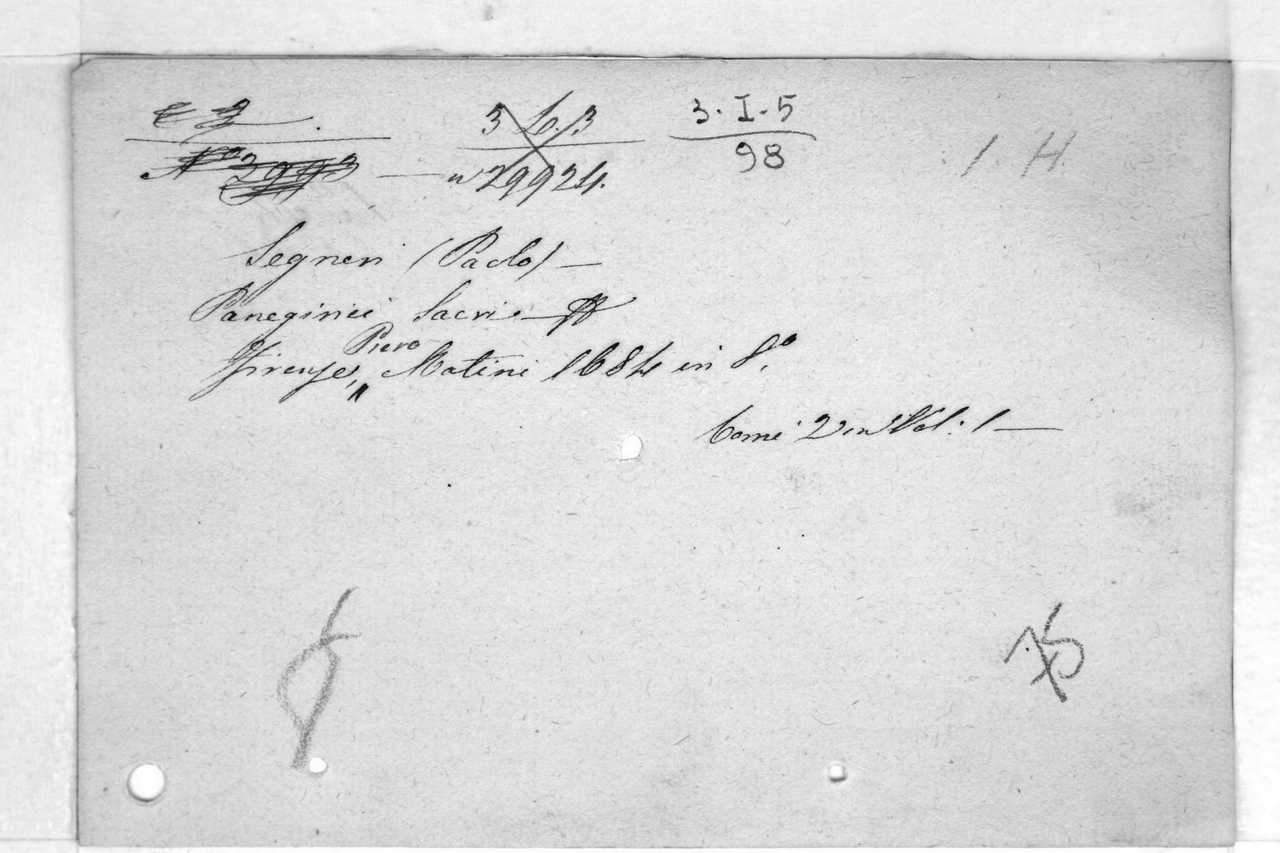 3 L. 3 3. I. 5
nº 29924. 98
1. H
Segneri (Paolo) —
Panegirici Sacri —
Firenze, Piero Matini 1684 in 8.º
Tomi 2 in Vol. 1 —